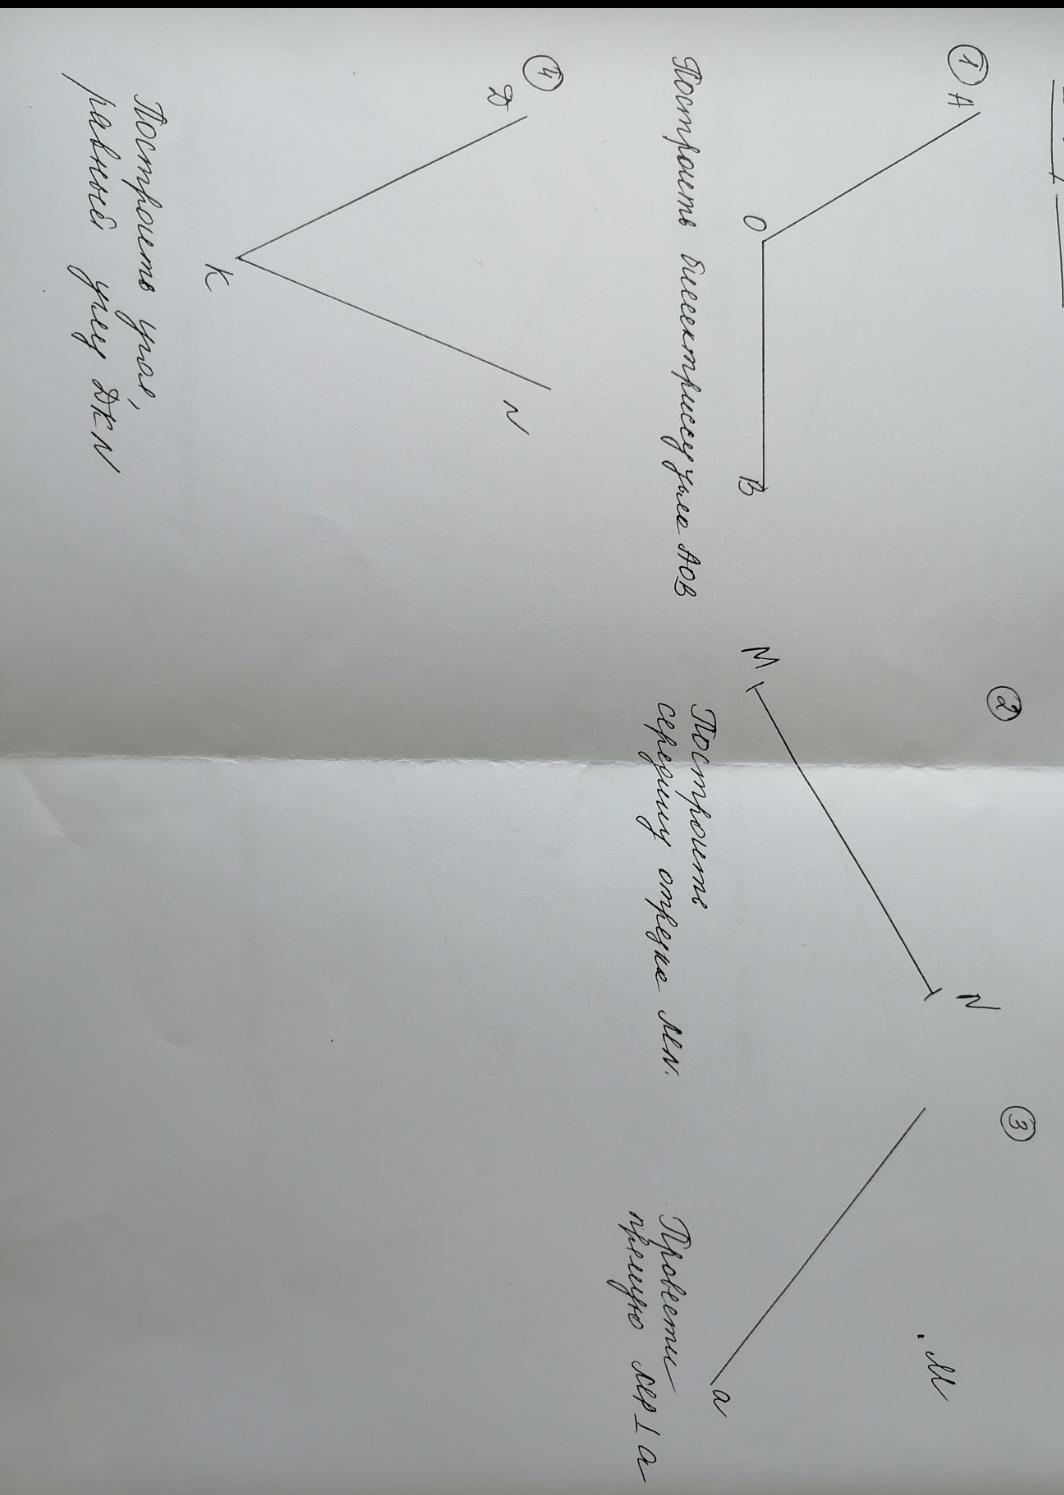 1
A
O
B
Построить биссектриссу угла АОВ
2
M
N
Построить
середину отрезка MN.
3
M
a
Провести
прямую MP⊥a
4
D
K
N
Построить угол,
равный углу DKN